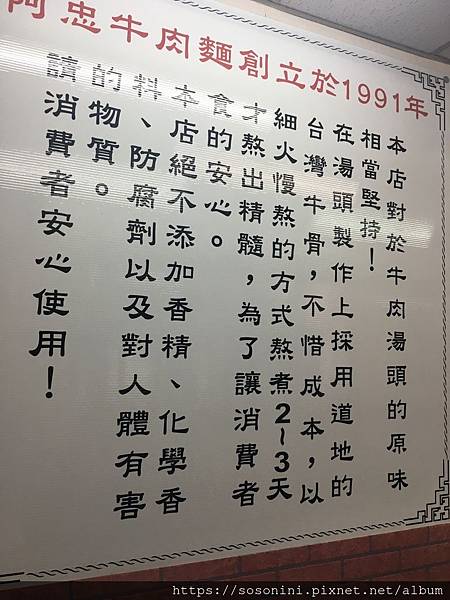 阿忠牛肉麵創立於1991年
本店對於牛肉湯頭的原味
相當堅持！
在湯頭製作上採用道地的
台灣牛骨，不惜成本，以
細火慢熬的方式熬煮2~3天
才熬出精髓，為了讓消費者
食的安心。
本店絕不添加香精、化學香
料、防腐劑以及對人體有害
的物質。
請消費者安心使用！
https://sosonini.pixnet.net/album